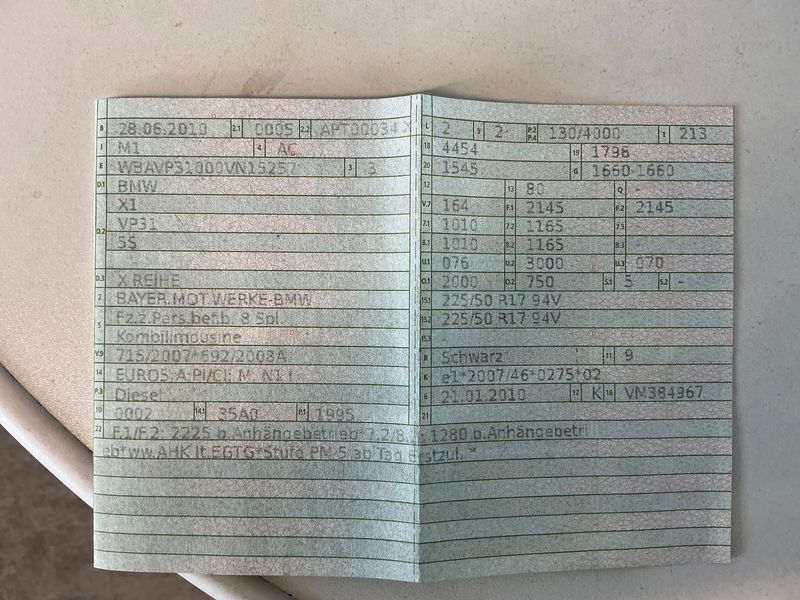 B 28.06.2010 2.1 0005 2.2 APT00034
J M1 4 AC
E WBAVP31000VN15257 3 3
D.1 BMW
X1
D.2 VP31
5S
D.3 X REIHE
2 BAYER.MOT.WERKE-BMW
5 Fz.z.Pers.bef.b. 8 Spl
Kombilimousine
V.9 715/2007*692/2008A
14 EURO5 A PI/CI; M, N1 I
P.3 Diesel
10 0002 14.1 35A0 P.1 1995
L 2 9 2 P.2 P.4 130/4000 T 213
18 4454 19 1798
20 1545 G 1660-1660
12 13 80 Q -
V.7 164 F.1 2145 F.2 2145
7.1 1010 7.2 1165 7.3
8.1 1010 8.2 1165 8.3
U.1 076 U.2 3000 U.3 070
O.1 2000 O.2 750 S.1 5 S.2 -
15.1 225/50 R17 94V
15.2 225/50 R17 94V
15.3
R Schwarz 11 9
K e1*2007/46*0275*02
6 21.01.2010 17 K 16 VM384967
21
22 F.1/F.2: 2225 b.Anhängebetrieb*7.2/8.2: 1280 b.Anhängebetri
eb*ww.AHK lt.EGTG*Stufe PM 5 ab Tag Erstzul. *